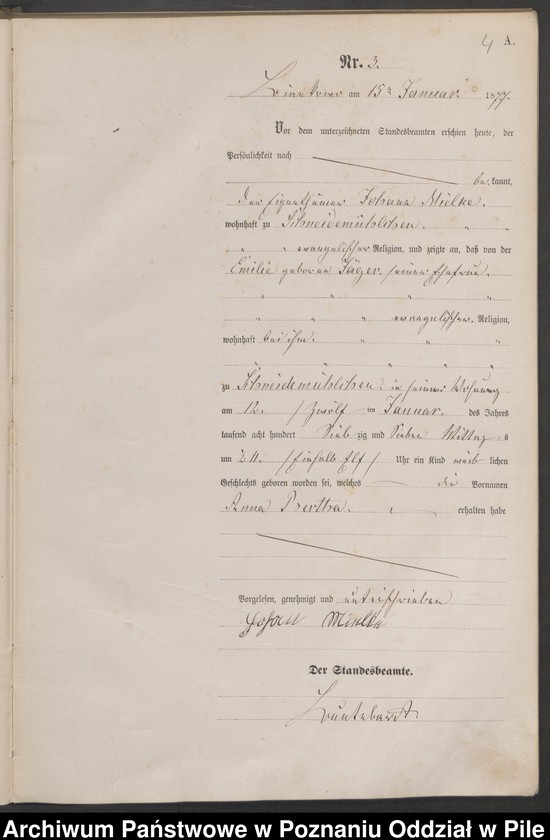 4 A.
Nr. 3.
am 15ten Januar 1877.
Vor dem unterzeichneten Standesbeamten erschien heute, der
Persönlichkeit nach
be kannt,
der Eigenthümer Johann Mielke.
wohnhaft zu Schneidemühlchen. " "
" " evangelischer Religion, und zeigte an, daß von der
Emilie geboren Jäger, seiner Ehefrau.
" " " "
" " " evangelischer. Religion,
wohnhaft bei ihm. " " "
" " " "
zu Schneidemühlchen in seiner Wohnung
am 12. /Zwölf im Januar. des Jahres
tausend acht hundert Sieb zig und Sieben Mittag s
um ½ 11. /Einhalb Elf/ Uhr ein Kind weib lichen
Geschlechts geboren worden sei, welches die Vornamen
Anna Bertha. erhalten habe
Vorgelesen, genehmigt und unterschrieben
Johan Mielke
Der Standesbeamte.
Archiwum Państwowe w Poznaniu Oddział w Pile